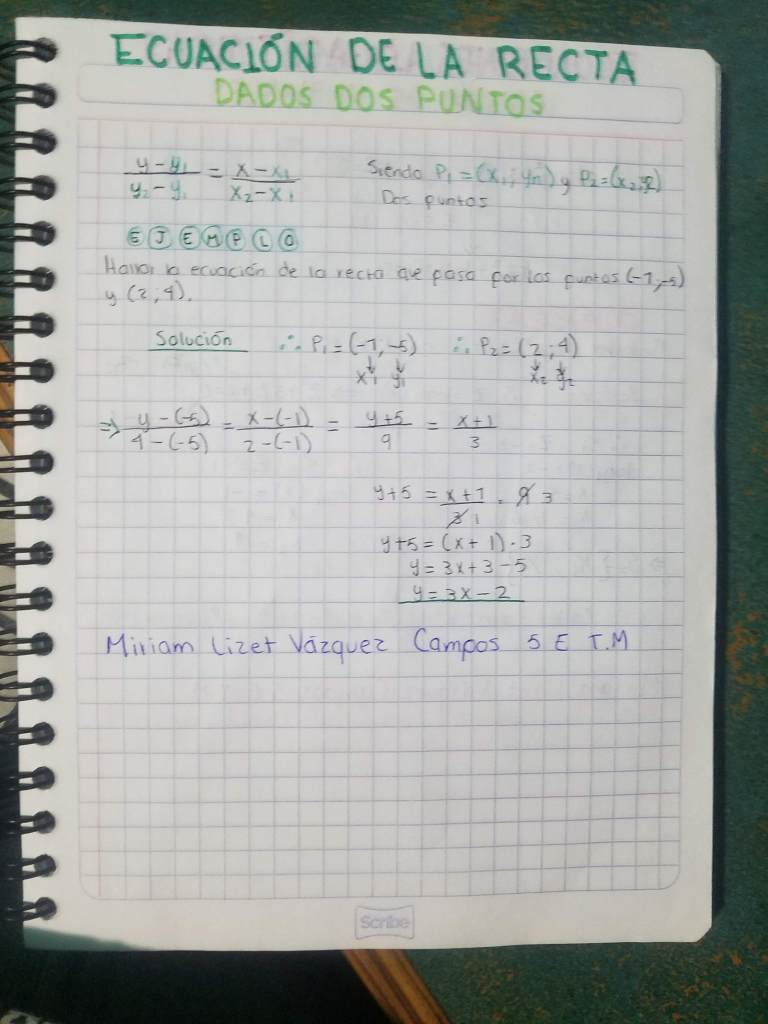 ECUACIÓN DE LA RECTA
DADOS DOS PUNTOS
y-y₁/y₂-y₁ = x-x₁/x₂-x₁ Siendo P₁=(x₁; yn) y P₂=(x₂; y2)
Dos puntos
EJEMPLO
Hallar la ecuación de la recta que pasa por los puntos (-1,-5)
y (2;4).
Solución ∴ P₁=(-1,-5) ∴ P₂=(2;4)
x₁ y₁ x₂ y₂
⇒ y-(-5)/4-(-5) = x-(-1)/2-(-1) = y+5/9 = x+1/3
y+5 = x+1/3 1 · 9 3
y+5=(x+1)·3
y=3x+3-5
y=3x-2
Miriam Lizet Vázquez Campos 5 E T.M
Scribe